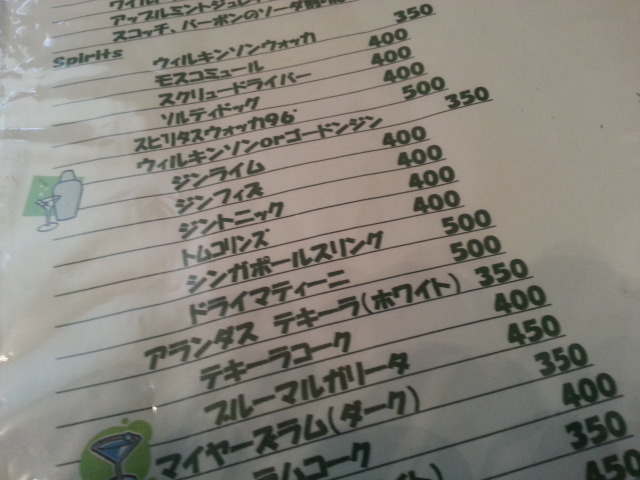 アップルミントジュレ
スコッチ、バーボンのソーダ割
Spirits ウィルキンソンウォッカ 350
モスコミュール 400
スクリュードライバー 400
ソルティドッグ 400
スピリタスウォッカ96° 500
ウィルキンソンorゴードンジン 350
ジンライム 400
ジンフィズ 400
ジントニック 400
トムコリンズ 400
シンガポールスリング 500
ドライマティーニ 500
アランダス テキーラ(ホワイト) 350
テキーラコーク 400
ブルーマルガリータ 450
マイヤーズラム(ダーク) 350
ラムコーク 400
イト) 350
450